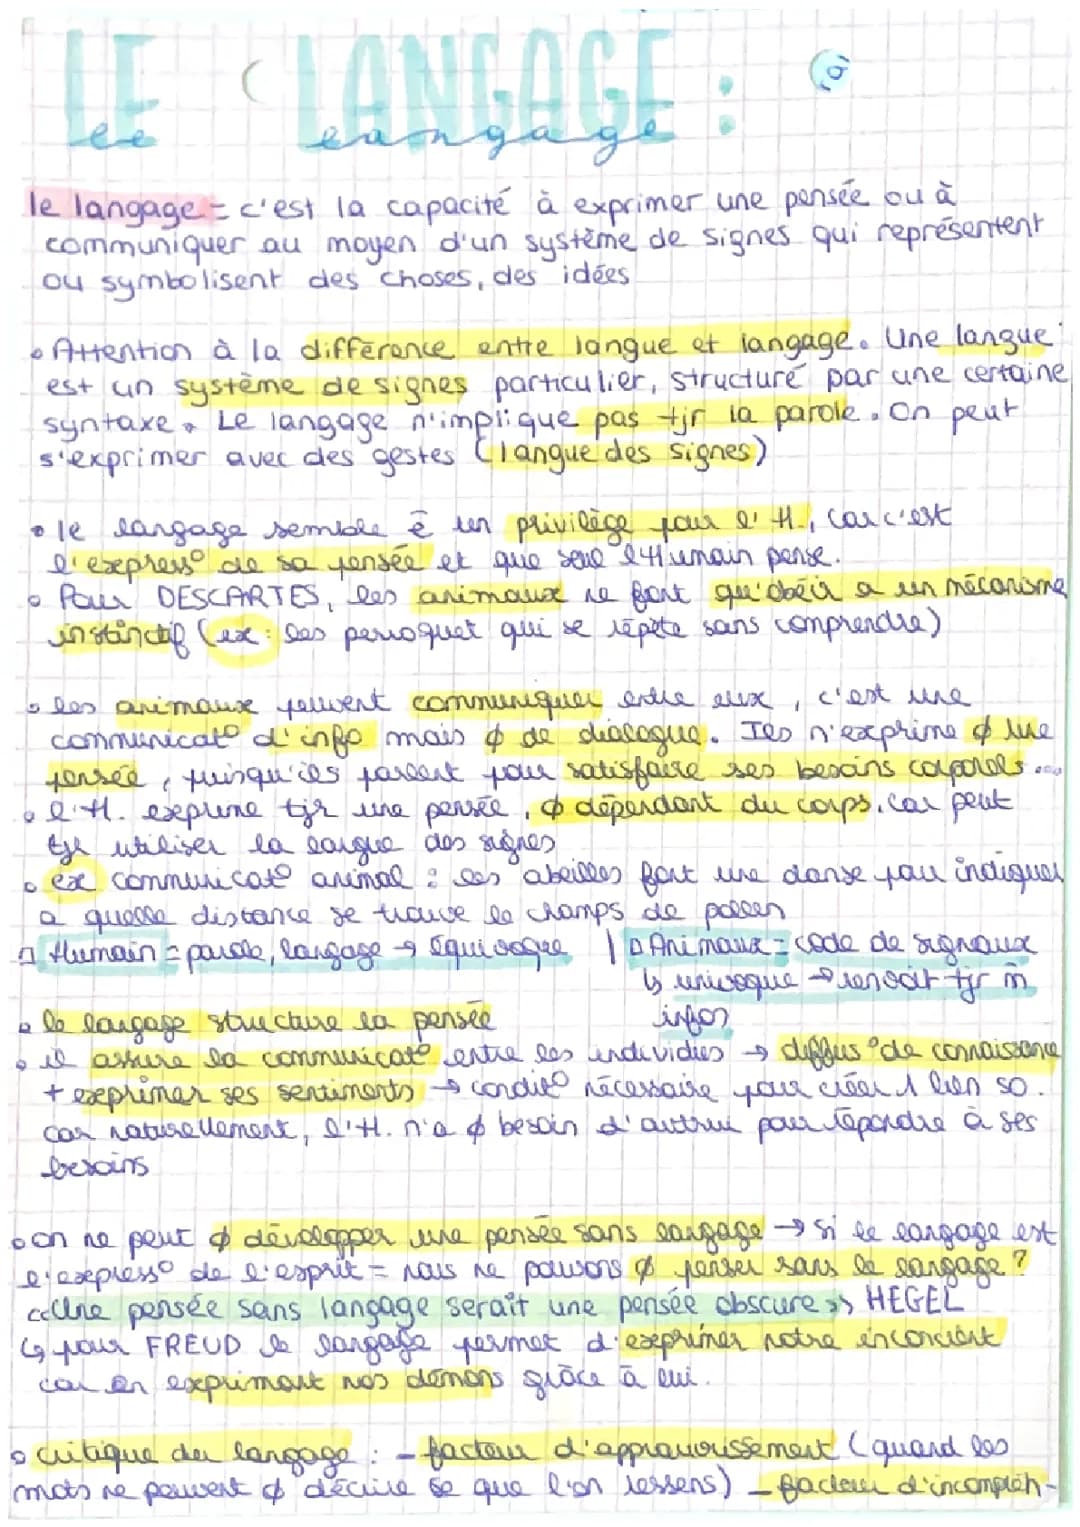 LE LANGAGE :
le langage
le langage = c'est la capacité à exprimer une pensée ou à
communiquer au moyen d'un système de signes qui représentent
ou symbolisent des choses, des idées
• Attention à la différence entre langue et langage. Une langue
est un système de signes particulier, structuré par une certaine
syntaxe. Le langage n'implique pas tjr la parole. On peut
s'exprimer avec des gestes (langue des signes)
• le langage semble ê un privilège pour l'H., car c'est
l'express° de sa pensée et que seul l'Humain pense.
• Pour DESCARTES, les animaux ne font qu'obéir a un mécanisme
instinctif (ex : les perroquet qui se répète sans comprendre)
• les animaux peuvent communiquer entre eux, c'est une
communicat° d'info mais ∅ de dialogue. Ils n'exprime ∅ une
pensée, puisqu'ils parlent pour satisfaire ses besoins corporels...
• l'H. exprime tjr une pensée, ∅ dépendant du corps. car peut
tjr utiliser la langue des signes
• ex communicat° animal : les abeilles font une danse pour indiquer
a quelle distance se trouve le champs de pollen
□ Humain = parole, langage → équivoque | □ Animaux = code de signaux
↳ univoque → renvoit tjr m̂
infos
• le langage structure la pensée
• il assure la communicat° entre les individus → diffus° de connaissance
+ exprimer ses sentiments → condit° nécessaire pour créer 1 lien so.
car naturellement, l'H. n'a ∅ besoin d'autrui pour répondre à ses
besoins
• on ne peut ∅ développer une pensée sans langage → si le langage est
l'express° de l'esprit = nous ne pouvons ∅ penser sans le langage ?
<< Une pensée sans langage serait une pensée obscure >> HEGEL
↳ pour FREUD le langage permet d'exprimer notre inconcient
car en exprimant nos démons grâce à lui.
• critique du langage : - facteur d'appauvrissement (quand les
mots ne peuvent ∅ décrire se que l'on ressens) - facteur d'incompréh-